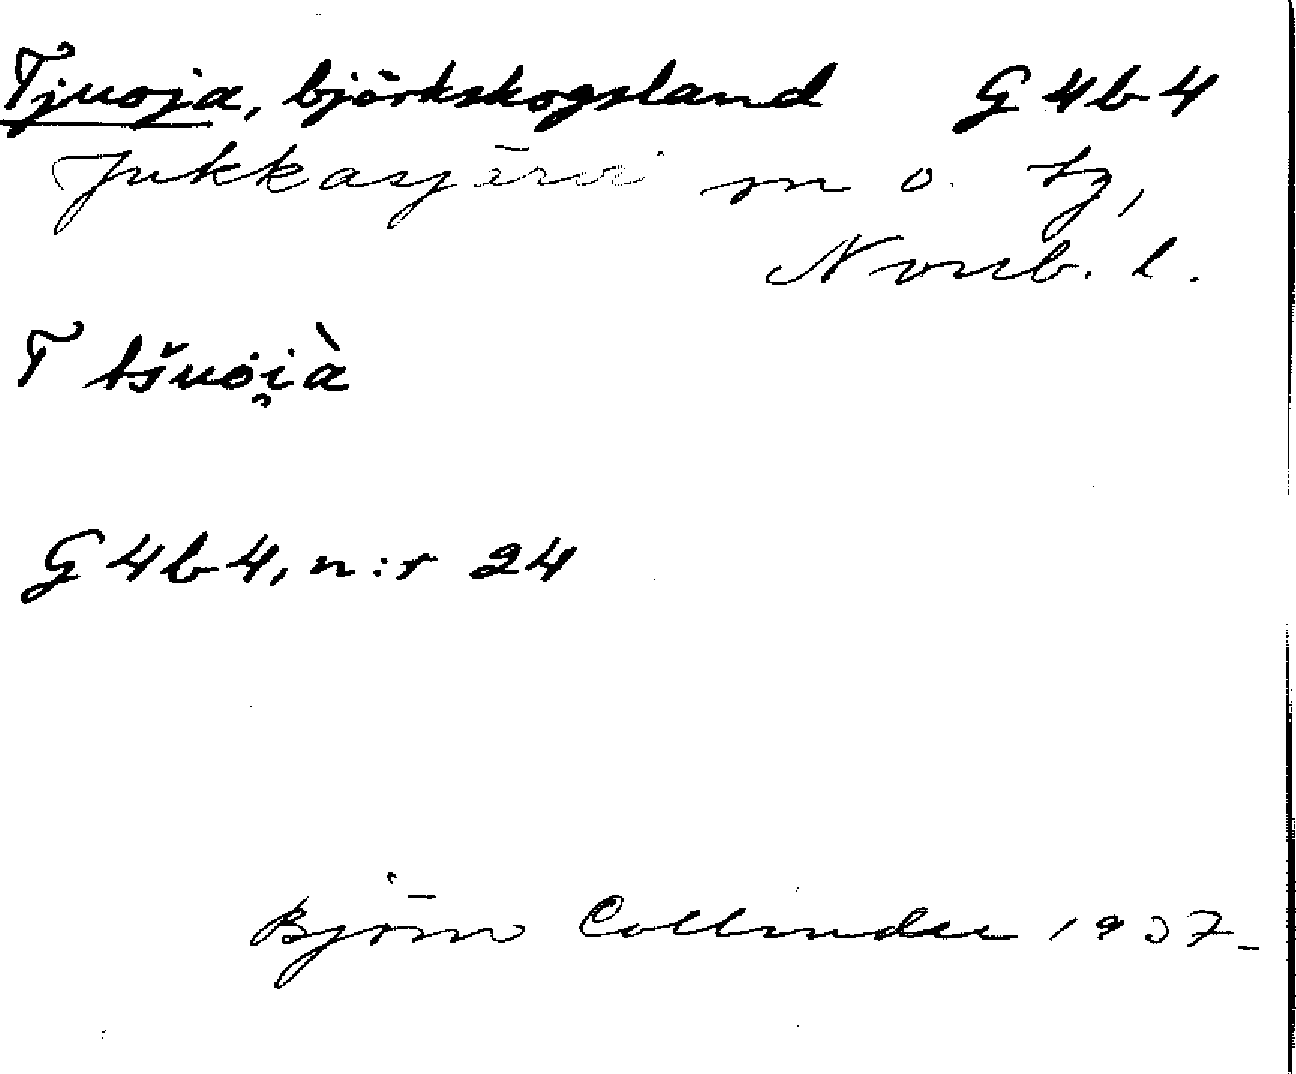 Tjuoja, björkskogsland G 4 b 4
Jukkasjärvi m o. tg,
Norrb. l.
T tšuoi̯à
G 4 b 4, n:r 24
Björn Collinder 1937